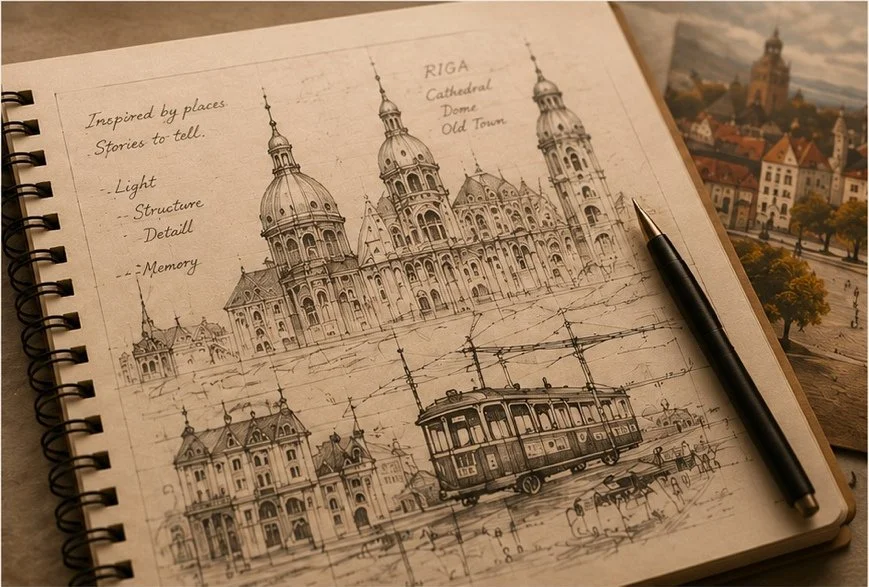 Inspired by places
Stories to tell.
Light
Structure
Detaill
Memory
RIGA
Cathedral
Dome
Old Town